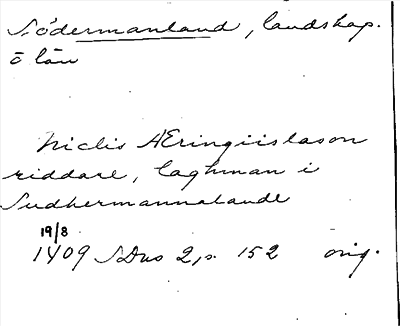 Södermanland, landskap.
o län
Niclis Æringiislason
riddare, laghman i
Sudhermannalande
19/8
1409 SDns 2, s. 152 orig.